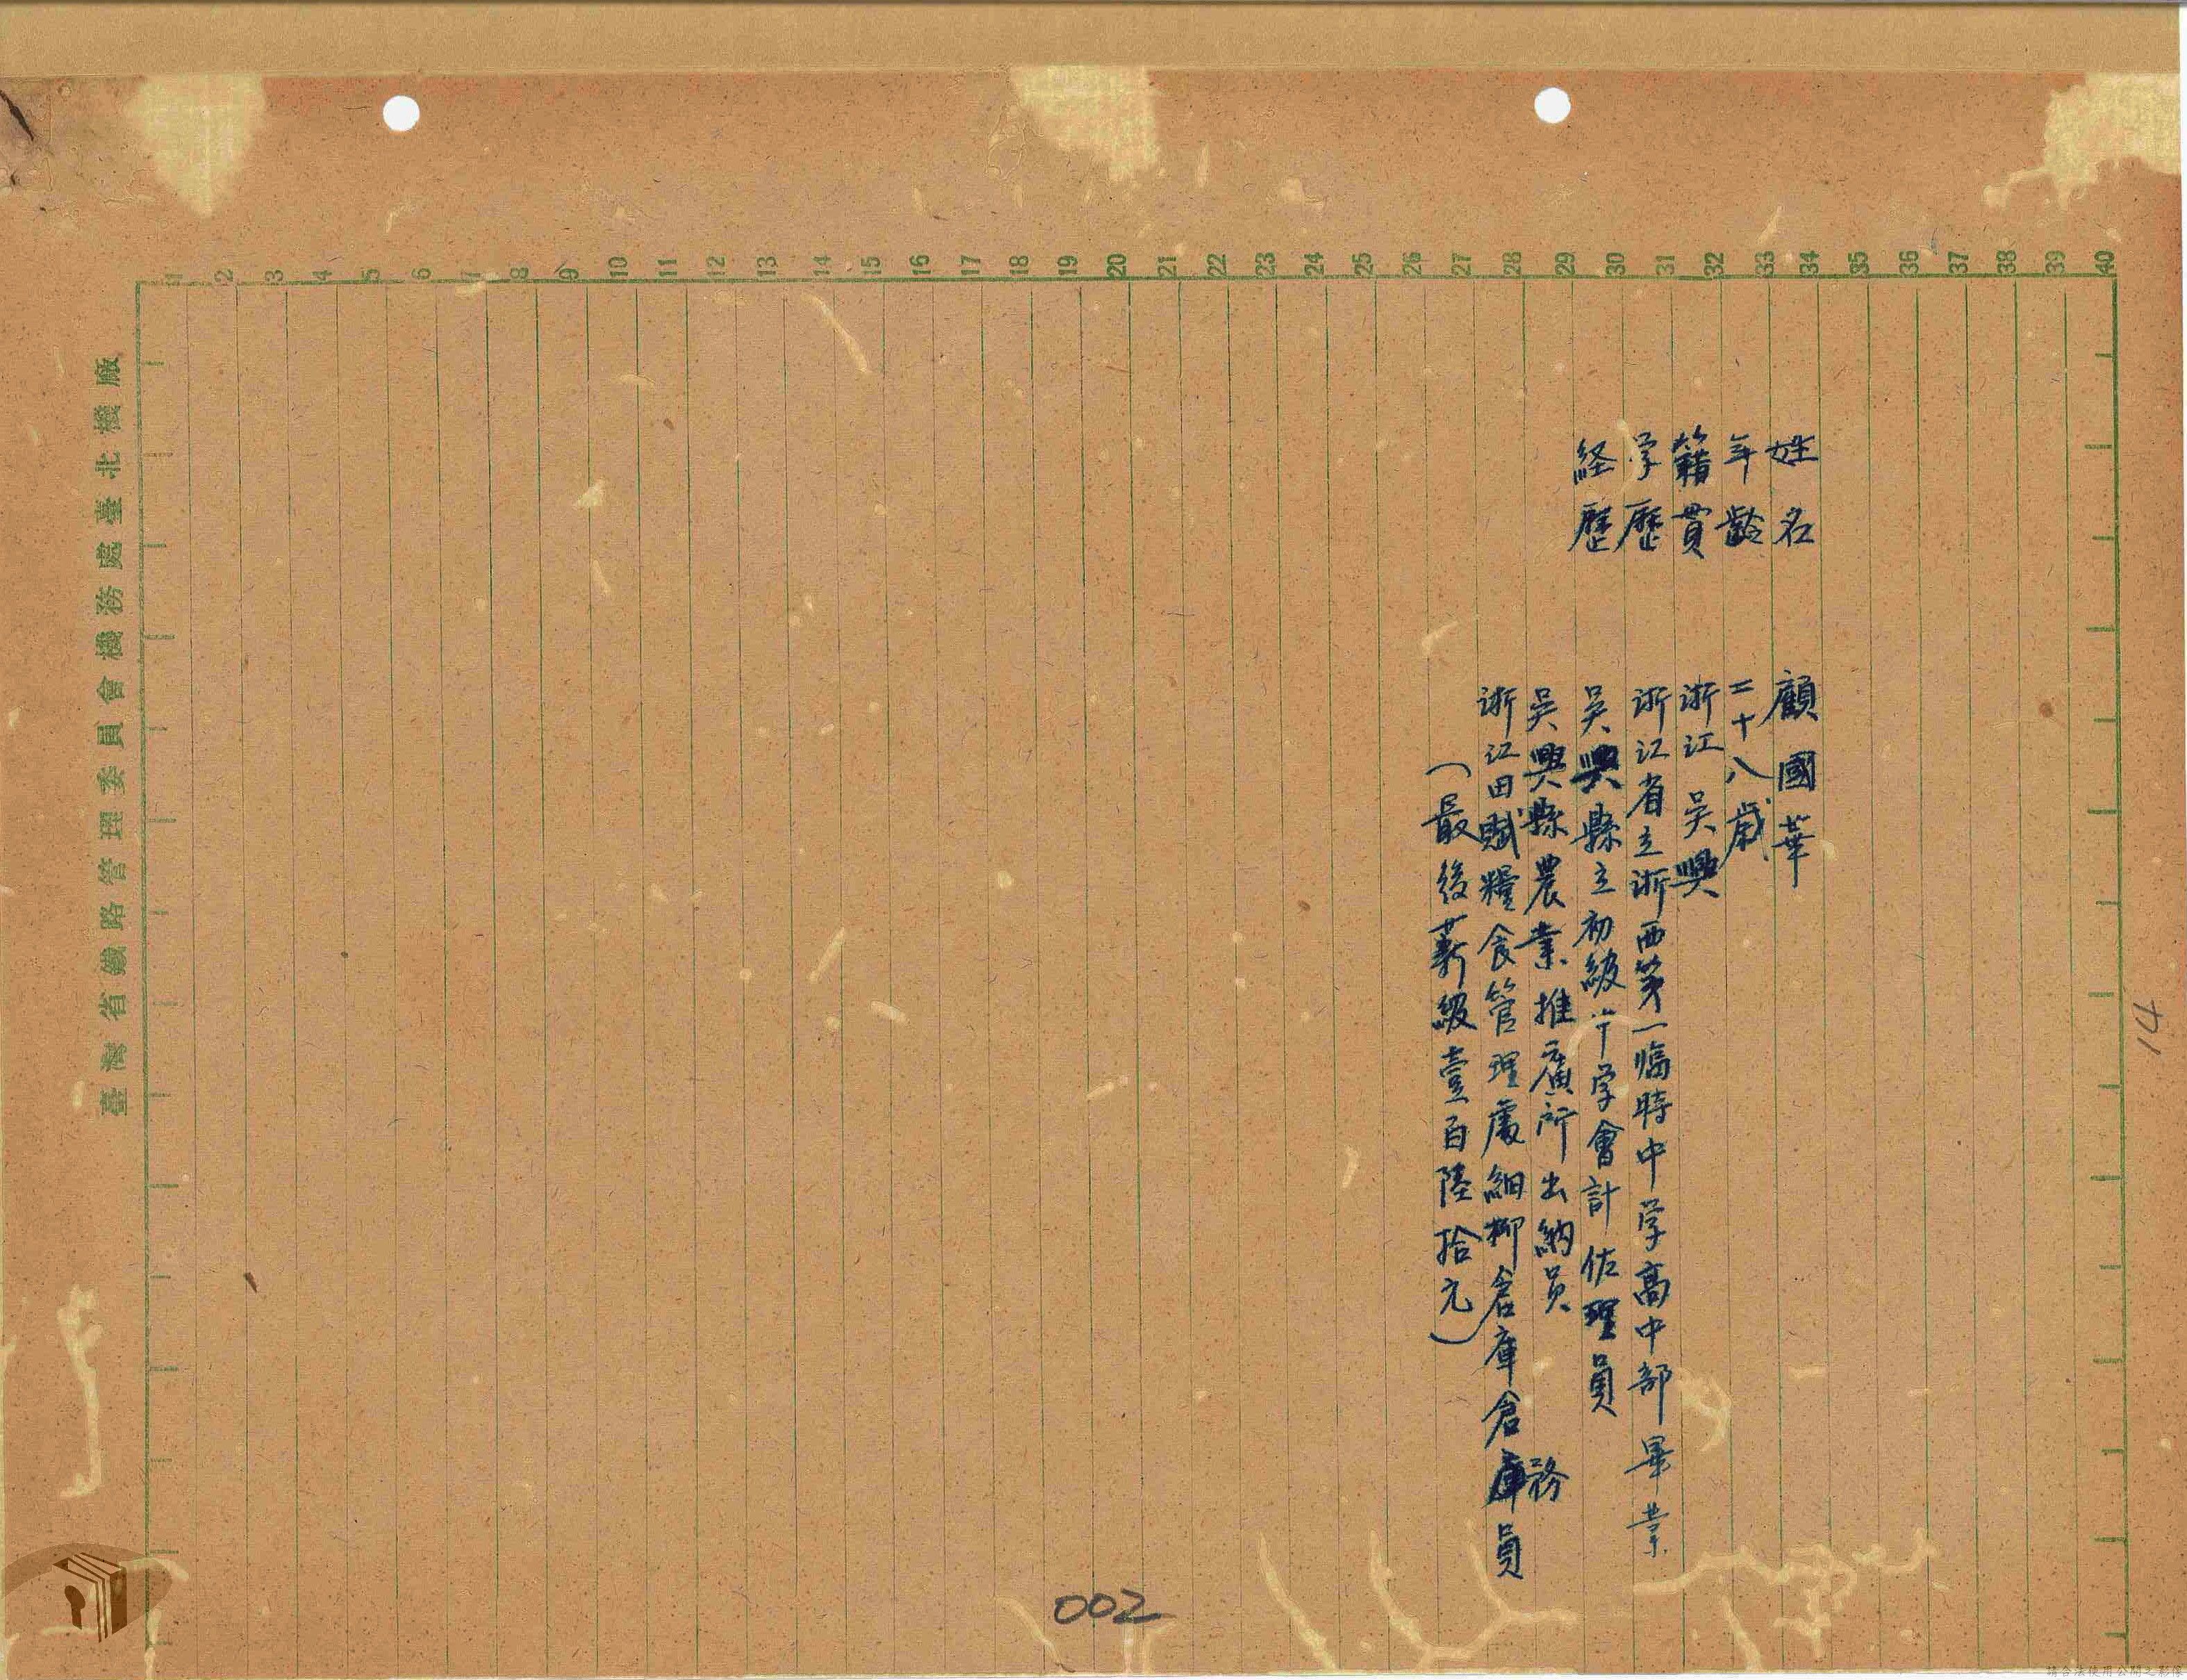 1 2 3 4 5 6 7 8 9 10 11 12 13 14 15 16 17 18 19 20 21 22 23 24 25 26 27 28 29 30 31 32 33 34 35 36 37 38 39 40
姓名 顧國華
年齡 二十八歲
籍貫 浙江吳興
学歷 浙江省立浙西第一臨時中学高中部畢業
経歷 吳興縣立初級中学會計佐理員
吳興縣農業推廣所出納員
浙江田賦糧食管理處細柳倉庫倉務員
(最後薪級壹百陸拾元)
臺灣省鐵路管理委員會機務處臺北機廠
14
002
請合法使用公開之影像